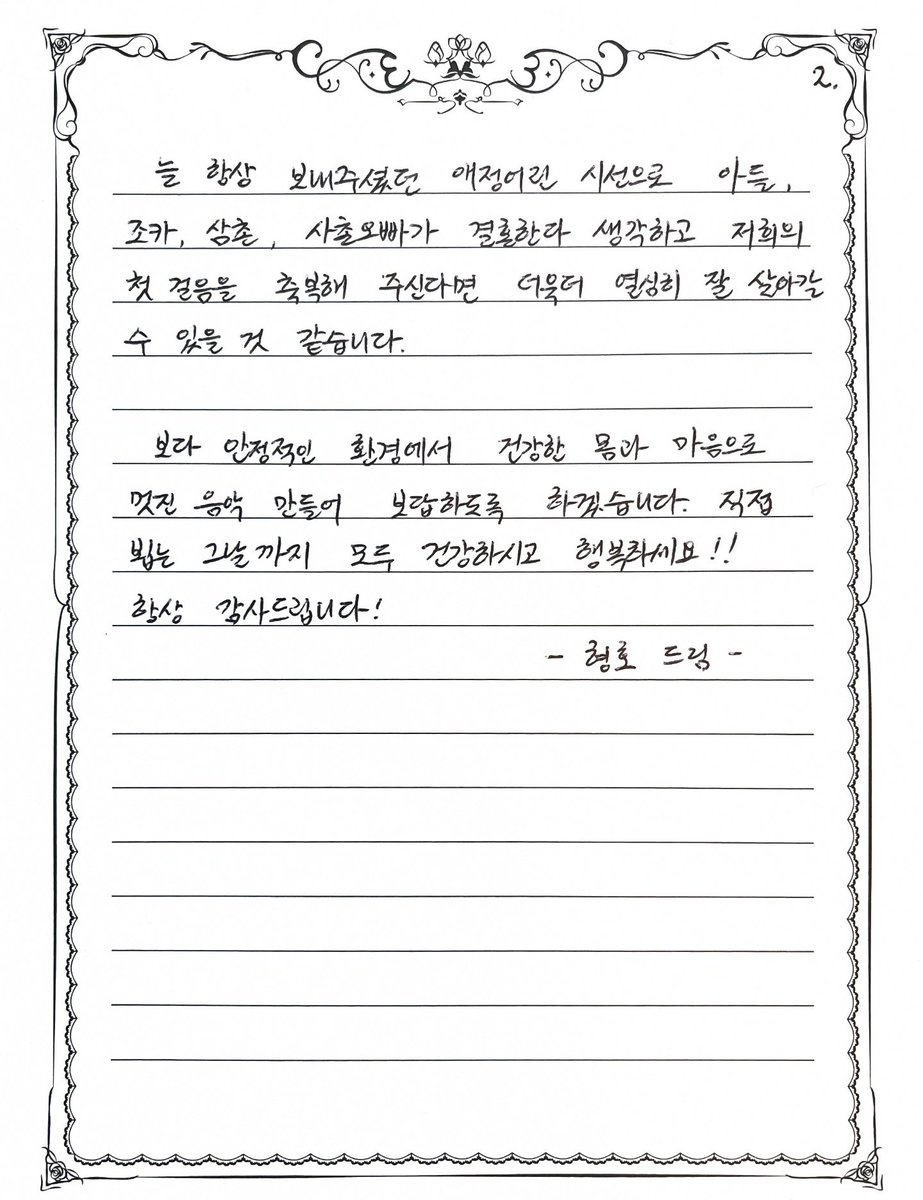 2.
늘 항상 보내주셨던 애정어린 시선으로 아들,
조카, 삼촌, 사촌오빠가 결혼한다 생각하고 저희의
첫 걸음을 축복해 주신다면 더욱더 열심히 잘 살아갈
수 있을 것 같습니다.
보다 안정적인 환경에서 건강한 몸과 마음으로
멋진 음악 만들어 보답하도록 하겠습니다. 직접
뵙는 그날까지 모두 건강하시고 행복하세요!!
항상 감사드립니다!
- 형호 드림 -